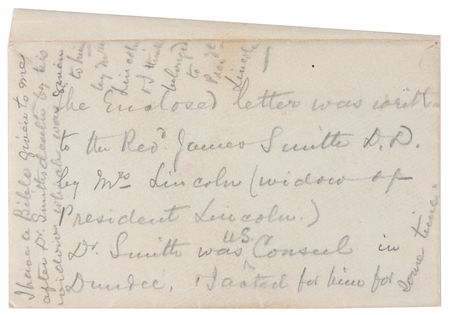 The Enclosed letter was written
to the Revd. James Smith D.D.
by Mrs Lincoln (widow of
President Lincoln.)
Dr. Smith was US Consul in
Dundee, I acted for him for
some time.
I have a Bible given to me
after Dr. Smith's death by his
widow which was given
to him
by Mrs
Lincoln
& I think
belonged
to
Presdt
Lincoln